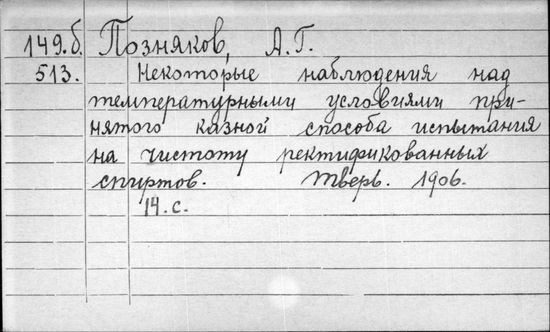 149.б. Позняков, А. Г.
513. Некоторые наблюдения над
температурными условиями при-
нятого казной способа испытания
на чистоту ректификованных
спиртов. Тверь. 1906.
14. с.